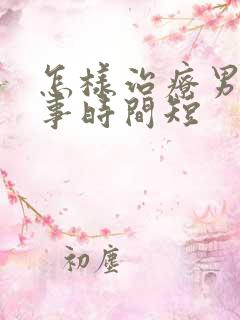 怎樣治療男
事時間短
初塵